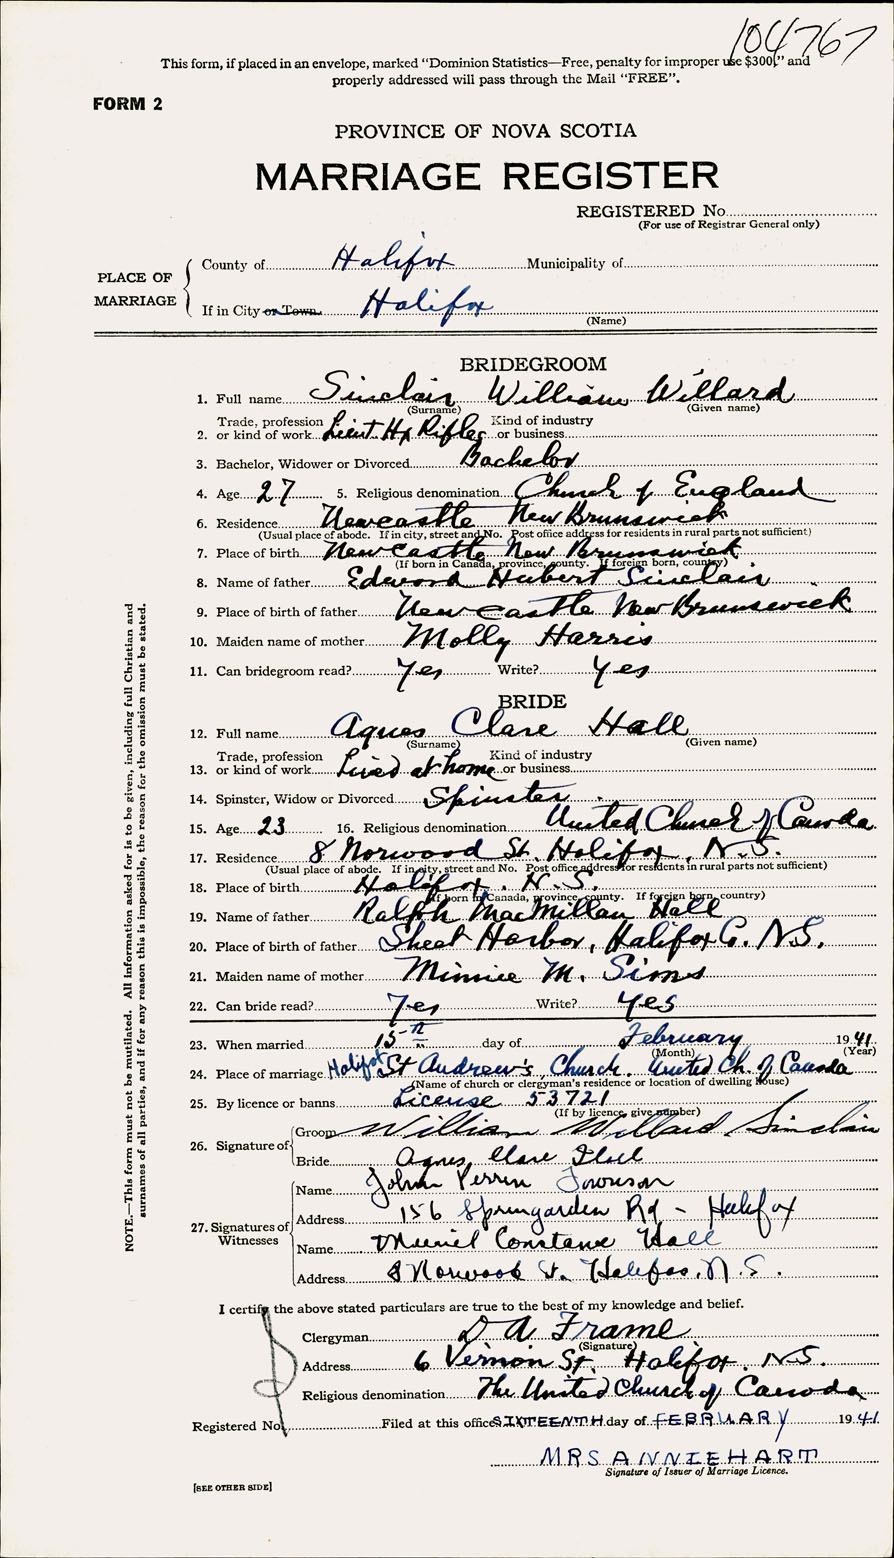 104767
This form, if placed in an envelope, marked "Dominion Statistics—Free, penalty for improper use $300," and
properly addressed will pass through the Mail "FREE".
FORM 2
PROVINCE OF NOVA SCOTIA
MARRIAGE REGISTER
REGISTERED No.
(For use of Registrar General only)
PLACE OF MARRIAGE
County of Halifax Municipality of
If in City or Town Halifax
(Name)
BRIDEGROOM
1. Full name Sinclair William Willard
(Surname) (Given name)
2. Trade, profession or kind of work Lieut Hx Rifles Kind of industry or business
3. Bachelor, Widower or Divorced Bachelor
4. Age 27 5. Religious denomination Church of England
6. Residence Newcastle New Brunswick
(Usual place of abode. If in city, street and No. Post office address for residents in rural parts not sufficient)
7. Place of birth Newcastle New Brunswick
(If born in Canada, province, county. If foreign born, country)
8. Name of father Edward Hubert Sinclair
9. Place of birth of father Newcastle New Brunswick
10. Maiden name of mother Molly Harris
11. Can bridegroom read? Yes Write? Yes
BRIDE
12. Full name Agnes Clare Hall
(Surname) (Given name)
13. Trade, profession or kind of work Lived at home Kind of industry or business
14. Spinster, Widow or Divorced Spinster
15. Age 23 16. Religious denomination United Church of Canada
17. Residence 8 Norwood St. Halifax, N.S.
(Usual place of abode. If in city, street and No. Post office address for residents in rural parts not sufficient)
18. Place of birth Halifax. N.S.
(If born in Canada, province, county. If foreign born, country)
19. Name of father Ralph MacMillan Hall
20. Place of birth of father Sheet Harbor, Halifax Co. N.S.
21. Maiden name of mother Minnie M. Sims
22. Can bride read? Yes Write? Yes
23. When married 15th day of February 1941
(Month) (Year)
24. Place of marriage Halifax St Andrew's Church. United Ch. of Canada
(Name of church or clergyman's residence or location of dwelling house)
25. By licence or banns License 53721
(If by licence, give number)
26. Signature of Groom William Willard Sinclair
Bride Agnes Clare Hall
27. Signatures of Witnesses
Name John Perrin
Address 156 Springarden Rd - Halifax
Name Muriel Constance Hall
Address 8 Norwood St. Halifax, N.S.
I certify the above stated particulars are true to the best of my knowledge and belief.
Clergyman D A Frame
(Signature)
Address 6 Vernon St. Halifax. N.S.
Religious denomination The United Church of Canada
Registered No. Filed at this office SIXTEENTH day of FEBRUARY 1941
MRS ANNIE HART
Signature of Issuer of Marriage Licence.
[SEE OTHER SIDE]
NOTE.—This form must not be mutilated. All information asked for is to be given, including full Christian and
surnames of all parties, and if for any reason this is impossible, the reason for the omission must be stated.